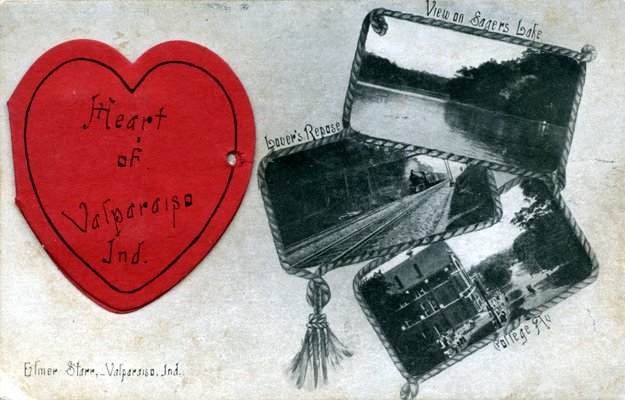 Heart
of
Valparaiso
Ind.
View on Sagers Lake
Lover's Repose
College Av
Elmer Starr, - Valparaiso, Ind.